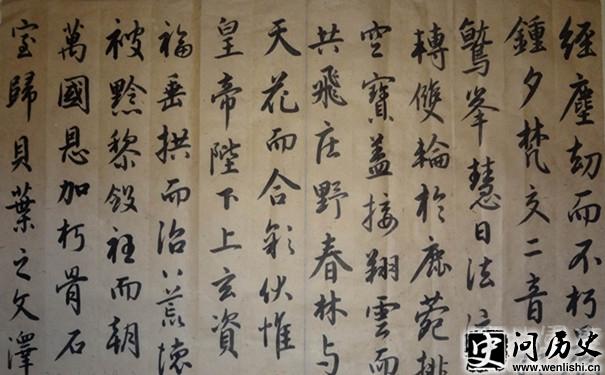 經塵劫而不朽
鍾夕梵交二音
鷲峯慧日法流
轉雙輪於鹿菀排
空寶蓋接翔雲而
共飛庄野春林與
天花而合彩伏惟
皇帝陛下上玄資
福垂拱而治八荒德
被黔黎斂衽而朝
萬國恩加朽骨石
室歸貝葉之文澤
问历史
www.wenlishi.cn